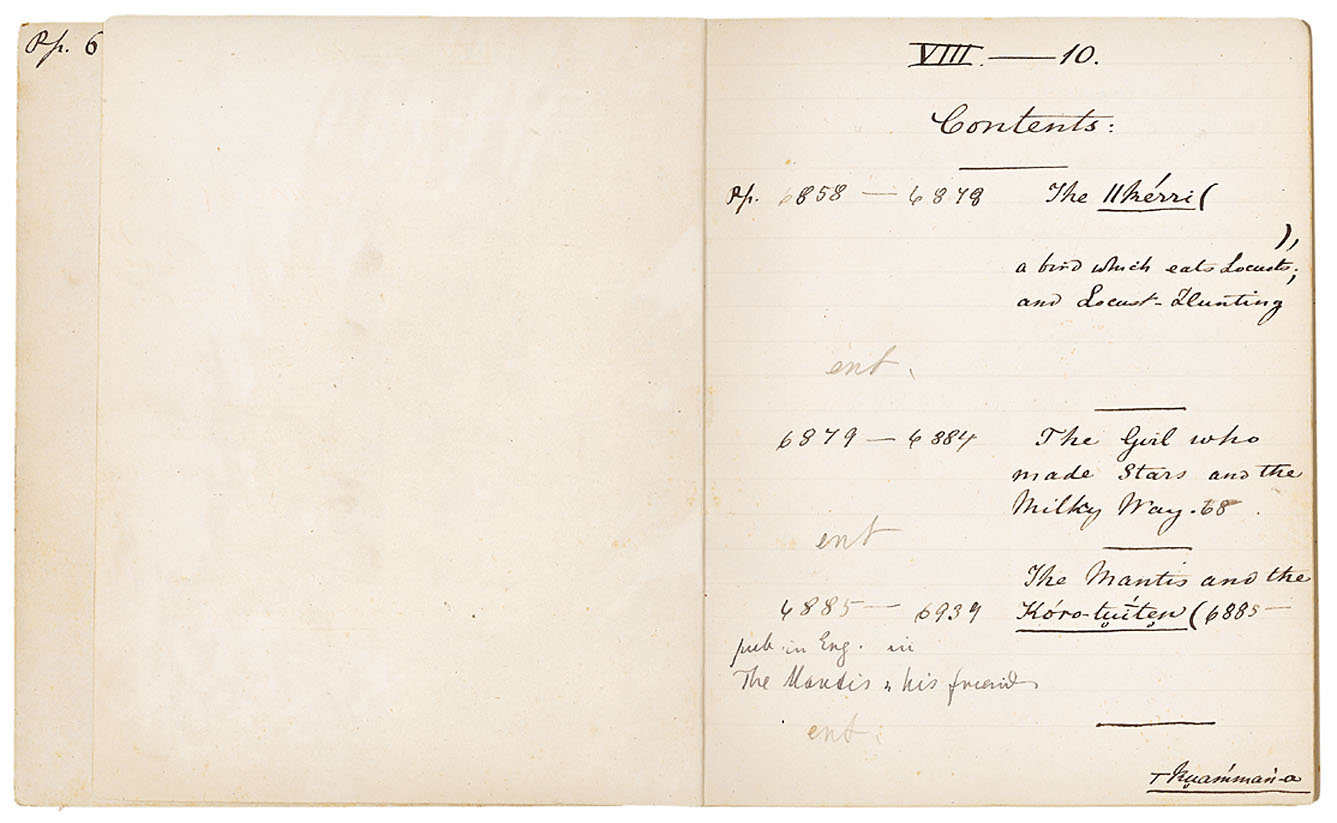 Pp. 6
VIII. — 10.
Contents:
Pp. 6858 — 6878 The ǁkérri (
),
a bird which eats Locusts;
and Locust-Hunting
ent.
6879 — 6884 The Girl who
made Stars and the
Milky Way. 68
ent
The Mantis and the
6885 — 6939 Kóro-tụítẹn (6885 —
pub. in Eng. in
The Mantis & his friends
ent.